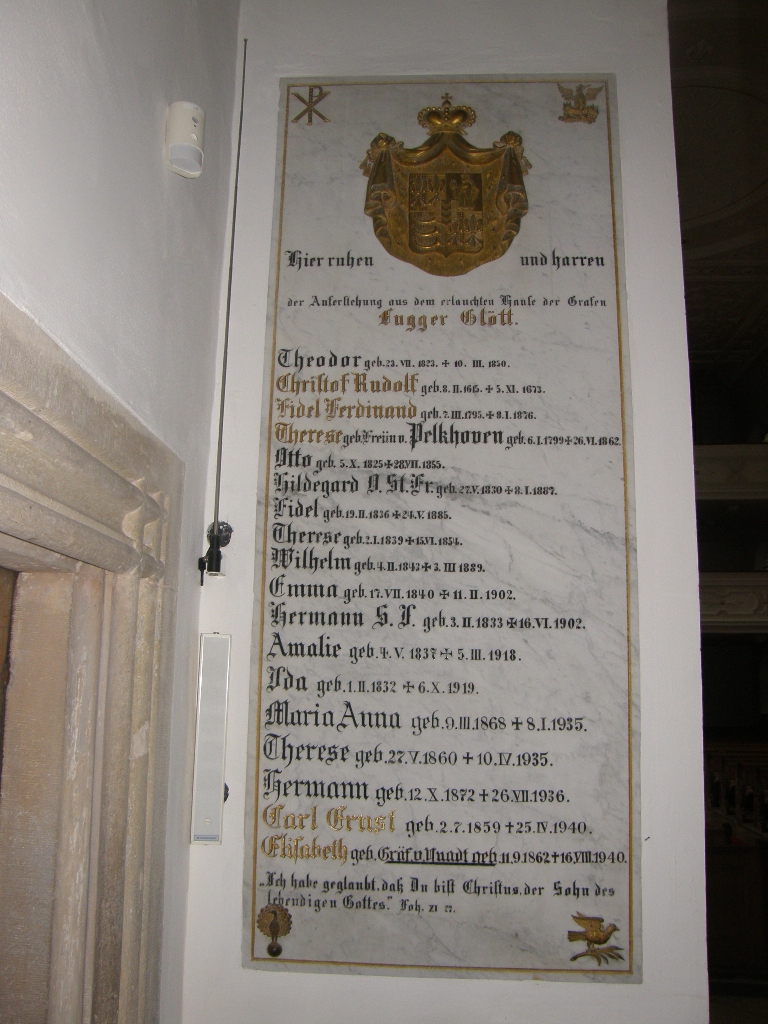 Hier ruhen und harren
der Auferstehung aus dem erlauchten Hause der Grafen
Fugger Glött.
Theodor geb. 23. VII. 1823. + 10. III. 1850.
Christof Rudolf geb. 8. II. 1615. + 5. XI. 1673.
Fidel Ferdinand geb. 7. III. 1795. + 8. I. 1876.
Therese geb. Freiin v. Pelkhoven geb. 6. I. 1799 + 26. VI. 1862.
Otto geb. 5. X. 1825 + 28. VII. 1855.
Hildegard O. St. Fr. geb. 27. V. 1830 + 8. I. 1887.
Fidel geb. 19. II. 1836 + 24. V. 1885.
Therese geb. 2. I. 1839 + 15. VI. 1854.
Wilhelm geb. 4. II. 1843 + 3. III 1889.
Emma geb. 17. VII. 1840 + 11. II. 1902.
Hermann S. J. geb. 3. II. 1833 + 16. VI. 1902.
Amalie geb. 4. V. 1837 + 5. III. 1918.
Ida geb. 1. II. 1832 + 6. X. 1919.
Maria Anna geb. 9. III. 1868 + 8. I. 1935.
Therese geb. 27. V. 1860 + 10. IV. 1935.
Hermann geb. 12. X. 1872 + 26. VII. 1936.
Carl Ernst geb. 2. 7. 1859 + 25. IV. 1940.
Elisabeth geb. Gräf. v. Quadt geb. 11. 9 1862 + 16. VIII. 1940.
„Ich habe geglaubt, daß Du bist Christus, der Sohn des
lebendigen Gottes." Joh.